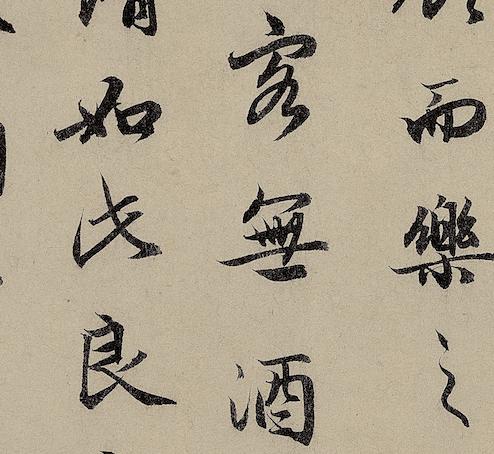 而樂之
客無酒
清如此良